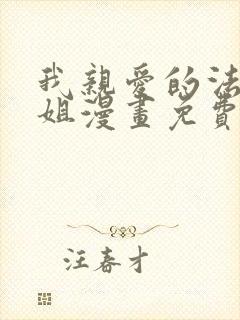 我親愛的法
姐漫畫免費
汪春才